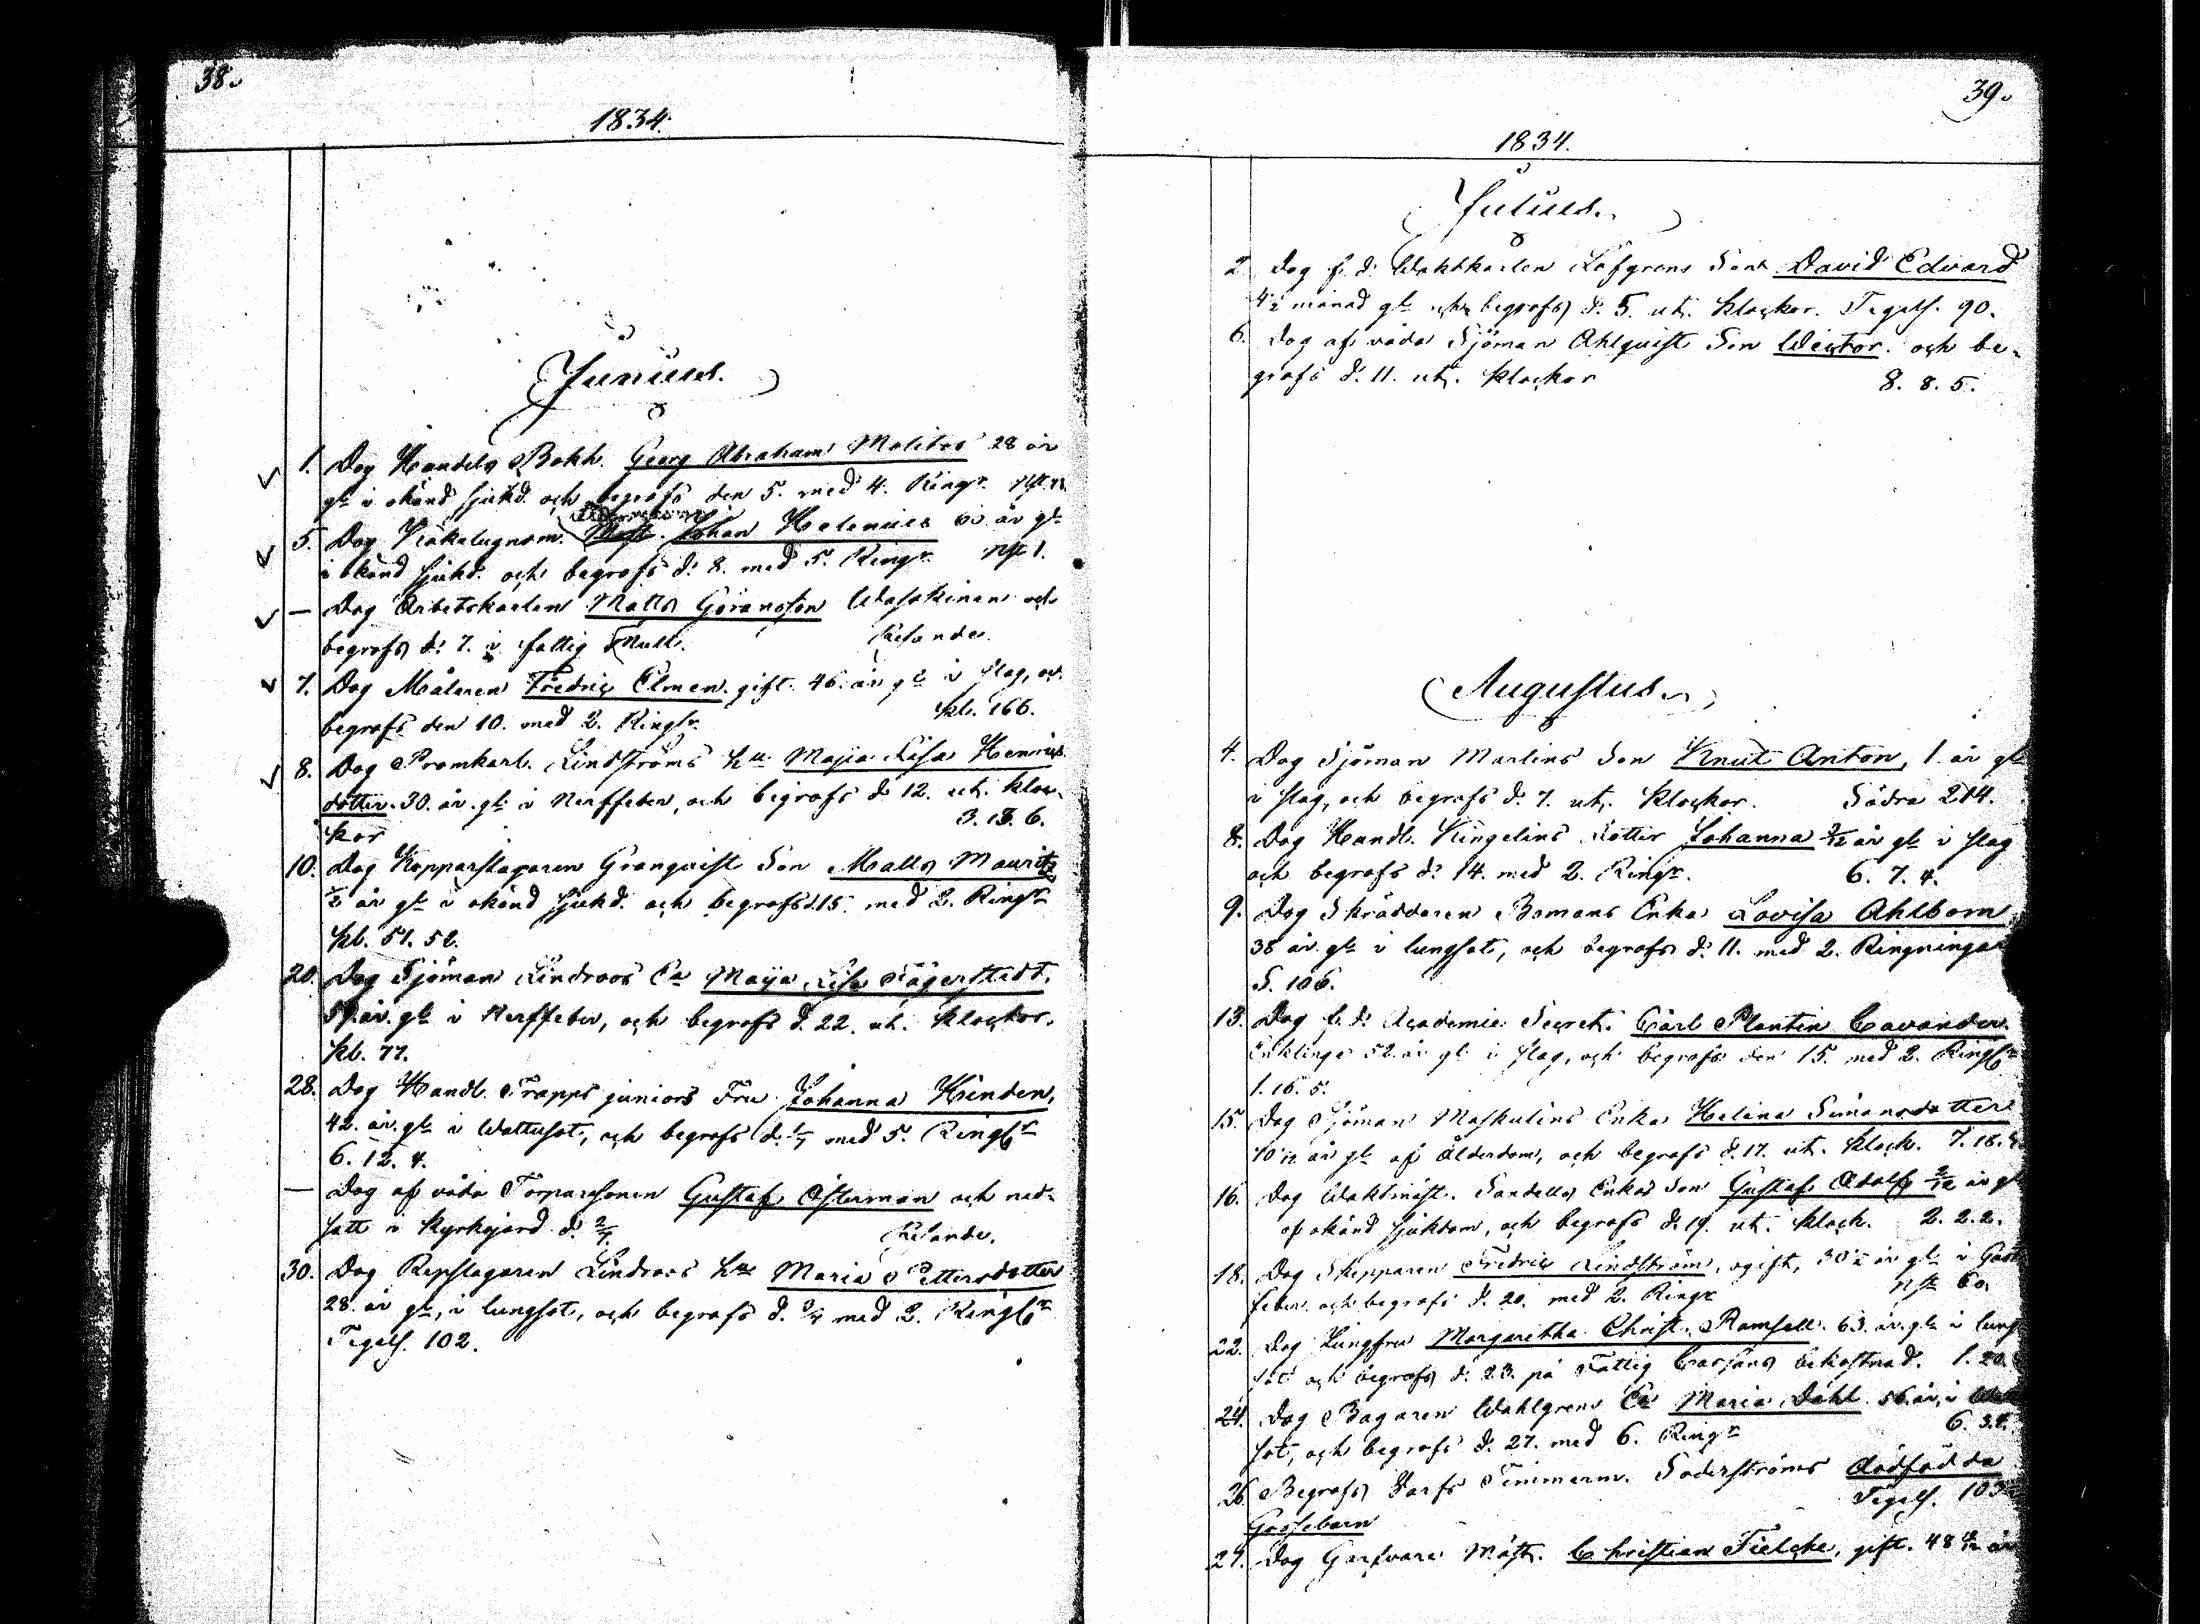 38.
1834.
Junius.
1. Dog Handels Bokh. Georg Abraham Molitor 28 år
gl. i okänd sjukd. och begrofs den 5. med 4. Ringr.
5. Dog Kiökalugnsm. Johan Helenius år gl.
i okänd sjukd. och begrofs d. 8. med 5. Ringr. No 1.
— Dog Arbetskarlen Matts Göransson och
begrofs d. 7. i fattig Mull. Resande.
7. Dog Målaren Fredric Elmen gift. 46. år gl. i slag, och
begrofs den 10. med 2. Ringr. Kl. 166.
8. Dog Promkarl. Lindströms hu Maja Lisa Henrics
dotter. 30. år. gl. i Nerffeber, och begrofs d. 12. ut. kloc-
kor 3. 13. 6.
10. Dog Kopparslagaren Granquist Son Matts Mauritz
½ år gl. i okänd sjukd. och begrofs d. 15. med 2. Ringr
Kl. 51. 52.
20. Dog Sjöman Lindroos Ea Maija Lisa Sägerstedt.
59. år. gl. i Nerffeber, och begrofs d. 22. ut. klockor.
Kl. 77.
28. Dog Handl. Trapps juniors Fru Johanna Kinden,
42. år. gl. i Wattusot, och begrofs d. 1/7 med 5. Ringr
6. 12. 4.
— Dog af våda Torparesonen Gustaf Österman och ned-
satt i Kyrkogård d. 2/7. Resande.
30. Dog Repslagaren Lindroos hu Maria Pettersdotter
28. år gl., i lungsot, och begrofs d. 3/7 med 2. Ringr
Tegels. 102.
39.
1834.
Julius.
2. Dog f. d. Waktkarlen Löfgrens Son David Edvard
4½ månad gl. och begrofs d. 5. ut. klockor. Tegels. 90.
6. Dog af våda Sjöman Ahlquist Son Wictor. och be-
grofs d. 11. ut. klockor 8. 8. 5.
Augustus.
4. Dog Sjöman Martins Son Knut Anton, 1. år gl
i slag, och begrofs d. 7. ut. klockor. Södra 214.
8. Dog Handl. Kingelins dotter Johanna 9/12 år gl i slag
och begrofs d. 14. med 2. Ringr. 6. 7. 4.
9. Dog Skräddaren Bomans Enka Lovisa Ahlbom
38 år. gl. i lungsot, och begrofs d. 11. med 2. Ringningar
S. 106.
13. Dog f. d. Academie Secret. Carl Plantin Cavander
Enkling 52. år gl. i slag, och begrofs den 15. med 2. Ringr
1. 16. 5.
15. Dog Sjöman Maskulins Enka Helena Simonsdotter
år gl. af Ålderdom, och begrofs d. 17. ut. klock. 7. 18.
16. Dog Waktmäst. Sandells Enkas Son Gustaf Adolf 3/12 år gl
af okänd sjukdom, och begrofs d. 19. ut. klock. 2. 2. 2.
18. Dog Skepparen Fredric Lindström, ogift, år gl. i
feber och begrofs d. 20. med 2. Ringr No 60.
22. Dog Jungfru Margaretha Christ. Ramsell. 63. år. gl. i lung
sot och begrofs d. 23. på Fattig Cassans bekostnad. 1. 20.
24. Dog Bagaren Wahlgrens Ea Maria Dahl 56. år, i
sot, och begrofs d. 27. med 6. Ringr 6. 3. 4.
26. Begrofs Varfs Timmerm. Söderströms dödfödda
Gossebarn Tegels. 103
27. Dog Garfvare Mäst. Christian Tielcke, gift. 48 år